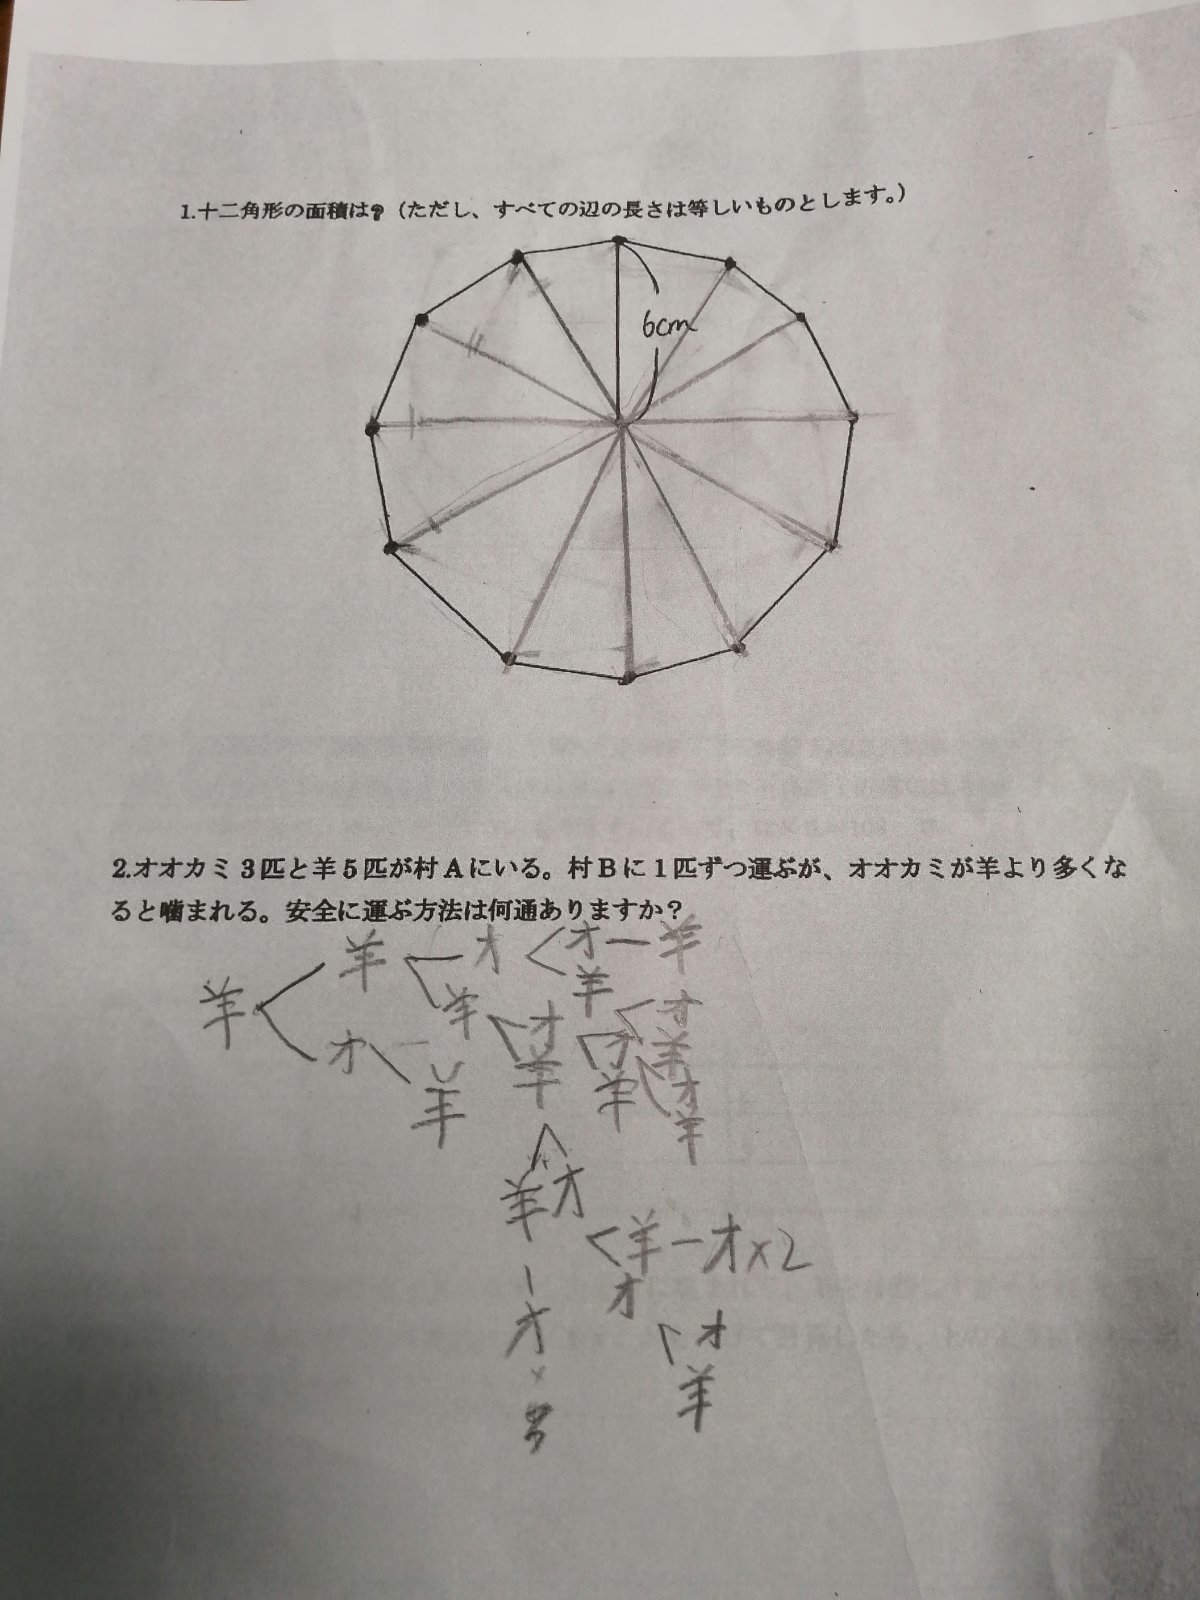 1.十二角形の面積は?（ただし、すべての辺の長さは等しいものとします。）
6cm
2.オオカミ3匹と羊5匹が村Aにいる。村Bに1匹ずつ運ぶが、オオカミが羊より多くな
ると噛まれる。安全に運ぶ方法は何通ありますか？
羊 オ オ 羊
羊 羊 羊 オ
オ オ オ 羊
羊 羊 羊 オ
羊
羊 オ
羊 オ×2
オ オ
オ 羊
×
3